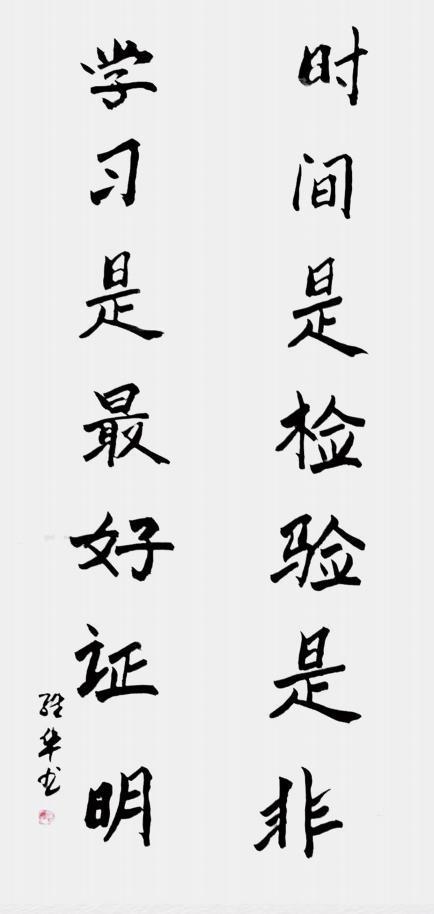 时间是检验是非
学习是最好证明
维华书